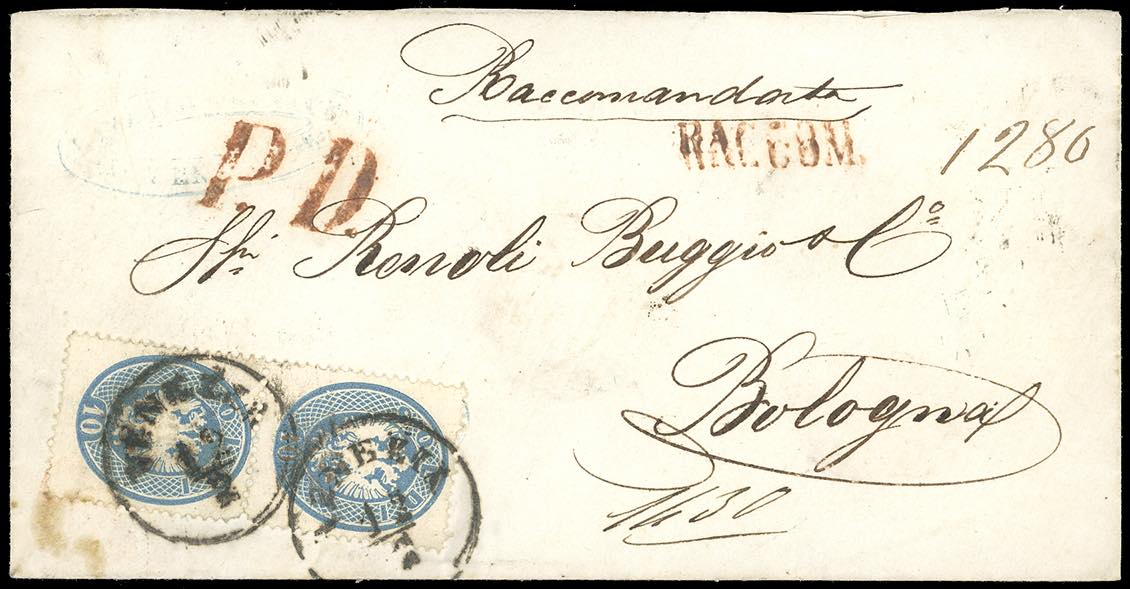 Raccomandata
RACCOM.
1280
P.D.
Renoli Buggio & Cº
Bologna
1430
10
VENEZIA
12
VENEZIA
12